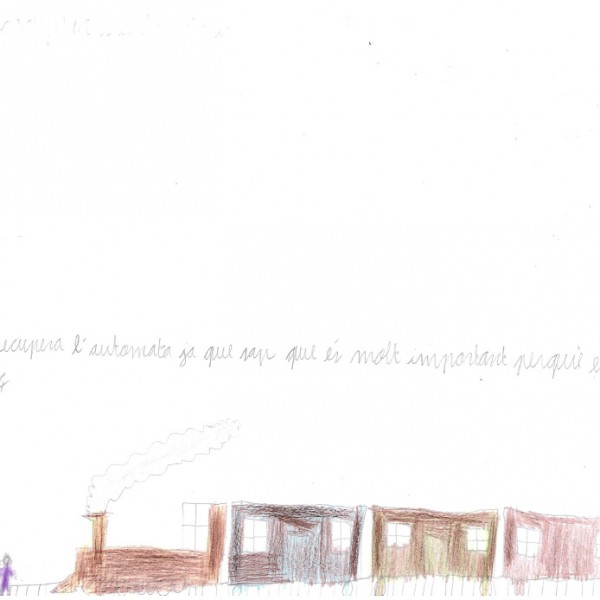 ecupera l'automata ja que sap que és molt important perquè e